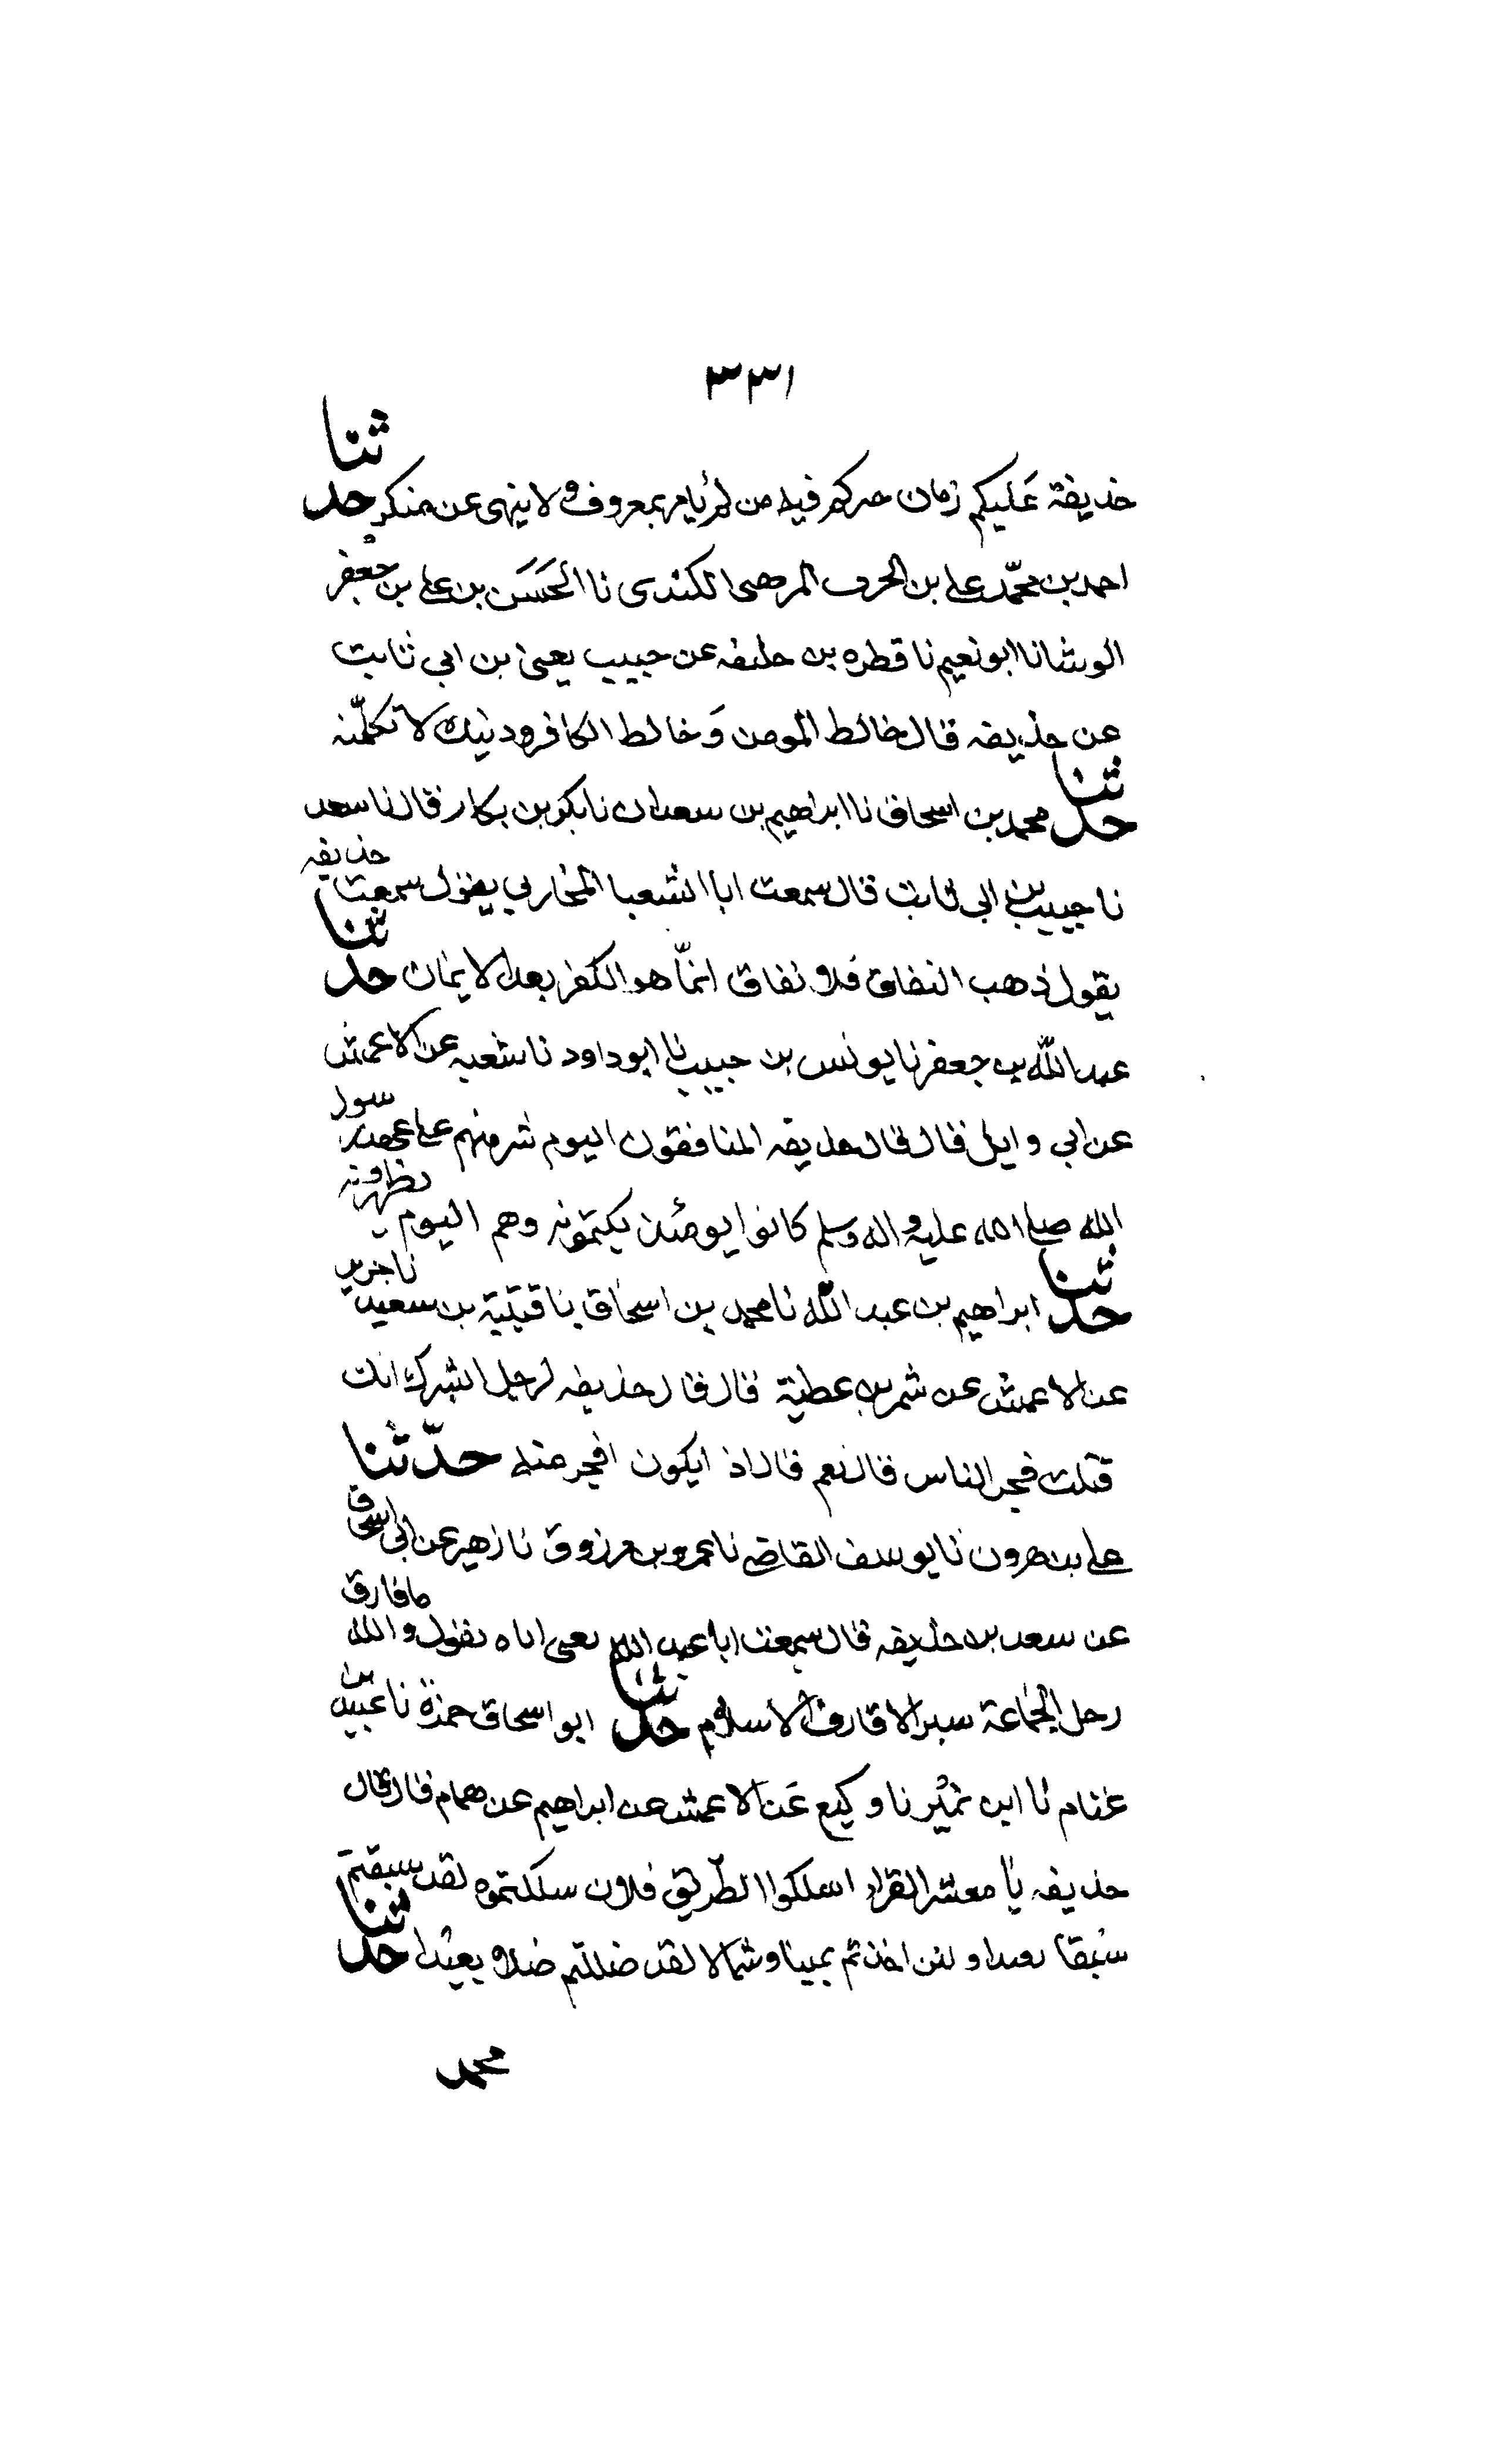 ٣٣١
حذيفة عليكم زمان خيركم فيه من لم يأمر بمعروف ولا ينهى عن منكر حدثنا
احمد بن محمّد على بن الحرث المرهبى الكندى نا الحَسَن بن على بن جعفر
الوشانا ابو نعيم نا قطره بن خليفه عن حبيب يعنى بن ابي ثابت
عن حذيفه قال خالط المومن وَخالط الكافر ودينك لا تكلمّنه
حدثنا محمد بن اسحاق نا ابراهيم بن سعدان نا بكر بن بكار قال نا سعد
نا حبيب بن ابى ثابت قال سمعت ابا الشعبا المحاربي يقول سمعت حذيفه
يقول ذهب النفاق فلا نفاق انمّا هو الكفر بعد الايمان حدثنا
عبد اللّه بن جعفر نا يونس بن حبيب نا ابو داود نا شعبه عن الاعمش
عن ابي وايل قال قال حذيفه المنافقون اليوم شر منهم على عهد رسول
الله صلى الله عليه واله وسلم كانوا يومئذ يكتمونه وهم اليوم يظهرونه
حدثنا ابراهيم بن عبد اللّه نا محمد بن اسحاق نا قتيبة بن سعيد نا جرير
عن الاعمش عن شمر بن عطية قال قال حذيفه لرجل ايسرك انك
قتلت فجر الناس قال نعم قال اذ ايكون افجر منه حدّثنا
على بن هرون نا يوسف القاضي نا عمرو بن مرزوق نا زهير عن ابى اسحاق
عن سعد بن حذيفه قال سمعت ابا عبد الله يعنى اباه يقول والله ما فارق
رجل الجماعة سبرا الا فارق الاسلام حدثنا ابو اسحاق حمزة نا عبيد بن
غنام نا ابن نمير نا وكيع عَن الاعمش عن ابراهيم عن همام قال قال
حذيفه يا معشر القراء اسلكوا الطّريق فلان سلكتموه لقد سبقتم
سبقا بعيدا ولئن اخذتم يمينا وشمالا لقد ضللتم ضلا بعيدا حدثنا
محمد